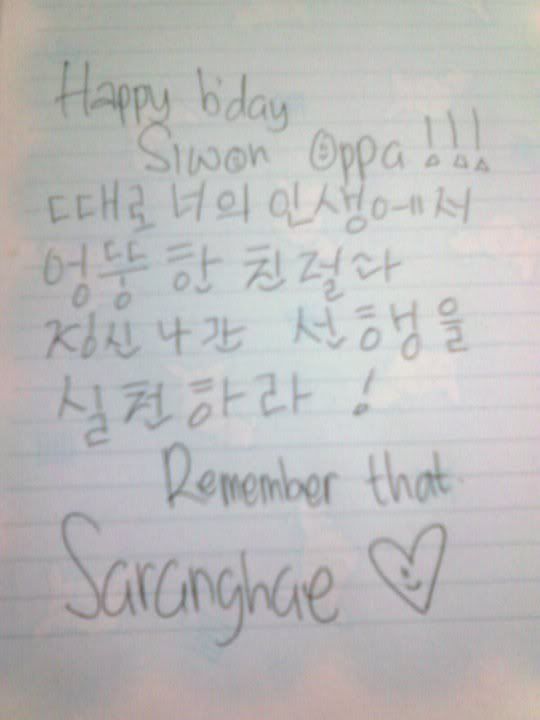 Happy b'day
Siwon Oppa !!!
때로 너의 인생에서
엉뚱한 친절과
정신나간 선행을
실천하라 !
Remember that
Saranghae